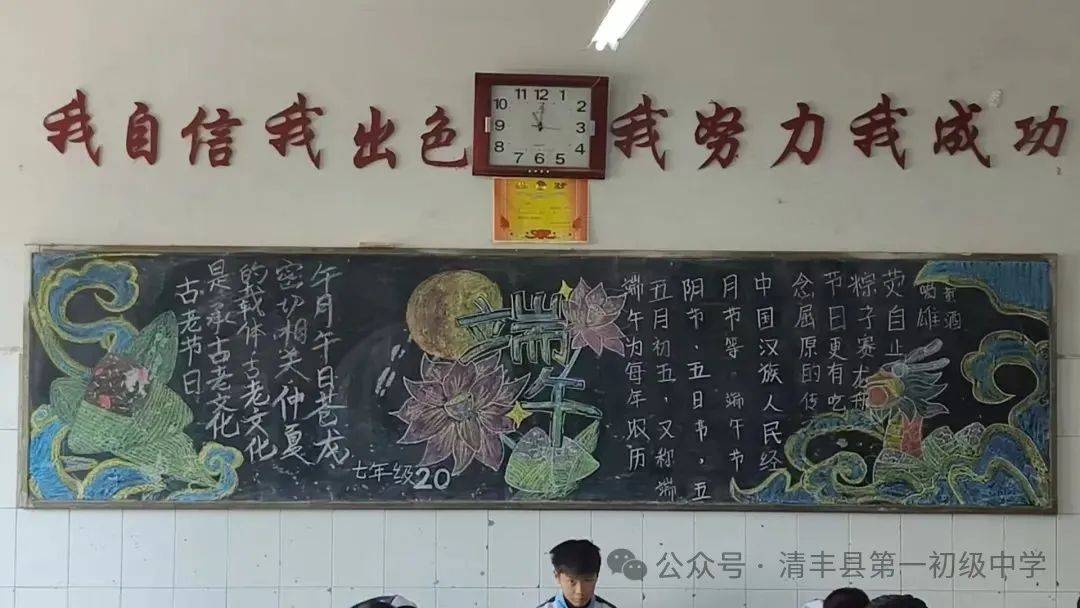 我自信我出色
我努力我成功
12
1
2
3
4
5
6
7
8
9
10
11
午月午日苍龙
密切相关仲夏
的载体古老文化
是承古老文化
古老节日
端午
七年级20
端午为每年农历
五月初五,又称端
阳节、五日节,五
月节等。端午节
中国汉族人民经
念屈原的传
节日更有吃
粽子赛龙舟
荧自止
喝雄
黄酒
公众号·清丰县第一初级中学